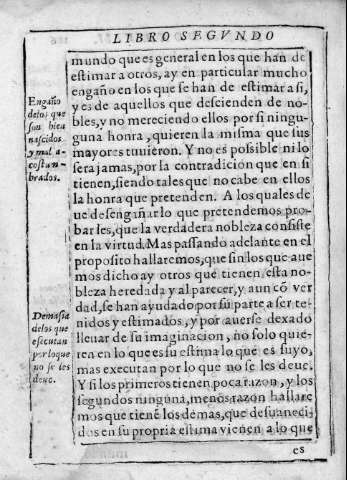 LIBRO SEGVNDO
mundo que es general en los que han de
estimar a otros, ay en particular mucho
engaño en los que se han de estimar a si,
y es de aquellos que descienden de no-
bles, y no mereciendo ellos por si ningu-
guna honra, quieren la misma que sus
mayores tuuieron. Y no es possible ni lo
sera jamas, por la contradicion que en si
tienen, siendo tales que no cabe en ellos
la honra que pretenden. A los quales de
ue desengañar lo que pretendemos pro-
bar les, que la verdadera nobleza consiste
en la virtud. Mas passando adelante en el
proposito hallaremos, que sin los que aue
mos dicho ay otros que tienen esta no-
bleza heredada y al parecer, y aun cõ ver
dad, se han ayudado por su parte a ser te-
nidos y estimados, y por auerse dexado
lleuar de su imaginacion, no solo quie-
ren en lo que es su estima lo que es suyo,
mas executan por lo que no se les deue.
Y si los primeros tienen poca razon, y los
segundos ninguna, menos razon hallare
mos que tienẽ los demas, que desuaneci-
dos en su propria estima vienen a lo que
es
Engaño
delos que
son bien
nascidos
y mal a-
costum-
brados.
Demasia
delos que
esecutan
por loque
no se les
deue.